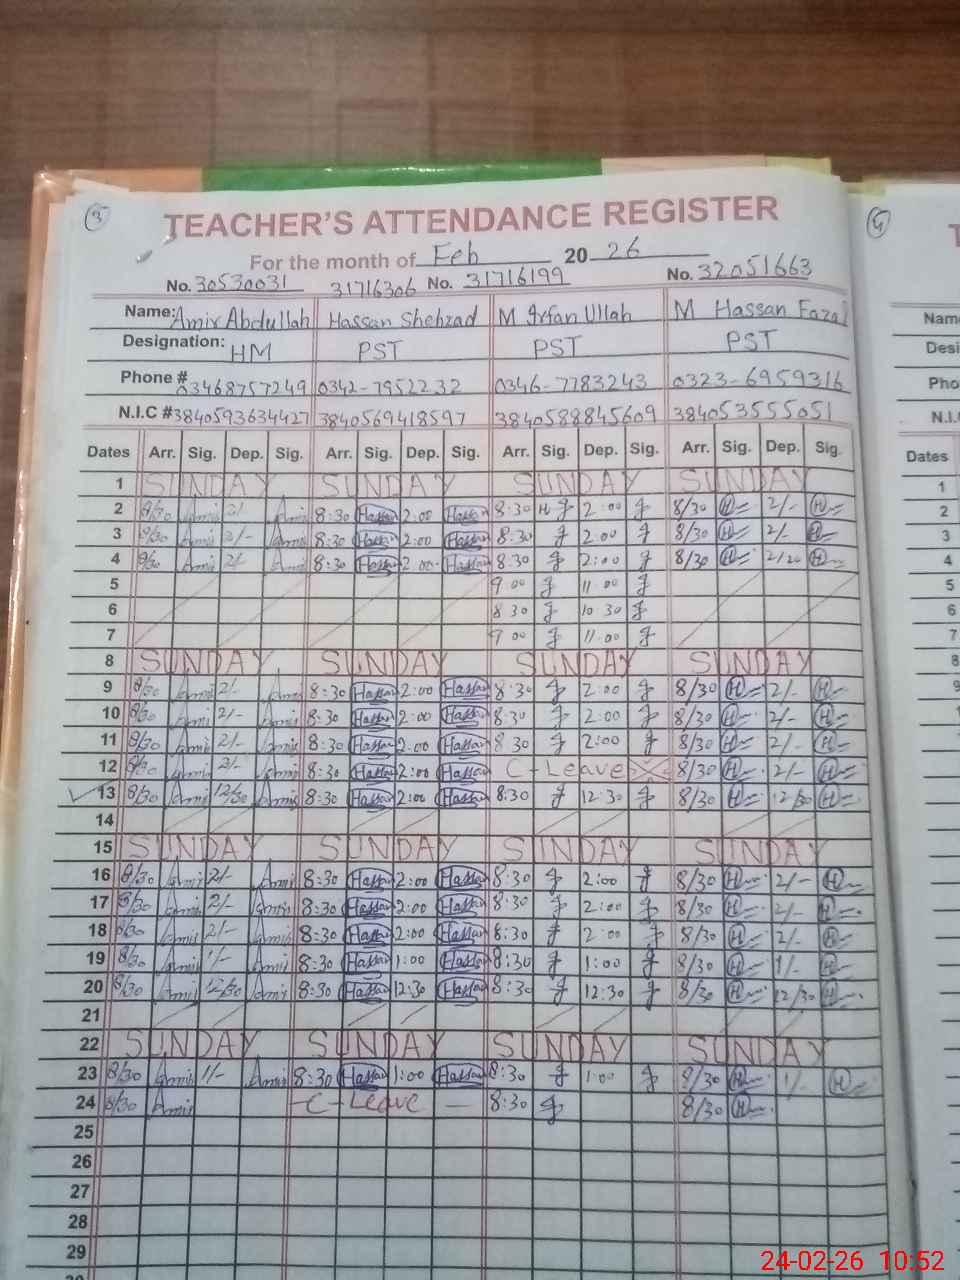 3
TEACHER'S ATTENDANCE REGISTER
For the month of Feb 20 26
No. 30530031 31716306 No. 31716199 No. 32051663
Name: Amir Abdullah Hassan Shehzad M Irfan Ullah M Hassan Fazal
Designation: HM PST PST PST
Phone # 03468757249 0342-7952232 0346-7783243 0323-6959316
N.I.C # 3840593634427 3840569418597 3840588845609 384053555051
Dates Arr. Sig. Dep. Sig. Arr. Sig. Dep. Sig. Arr. Sig. Dep. Sig. Arr. Sig. Dep. Sig.
1 SUNDAY SUNDAY SUNDAY SUNDAY
2 8/30 Amir 2/- Amir 8:30 Hassan 2:00 Hassan 8:30 2:00 8/30 H 2/- H
3 8/30 Amir 2/- Amir 8:30 Hassan 2:00 Hassan 8:30 2:00 8/30 H 2/- H
4 8/30 Amir 2/- Amir 8:30 Hassan 2:00 Hassan 8:30 2:00 8/30 H H
5 9:00 11:00
6 8:30 10:30
7 9:00 11:00
8 SUNDAY SUNDAY SUNDAY SUNDAY
9 8/30 Amir 2/- Amir 8:30 Hassan 2:00 Hassan 8:30 2:00 8/30 H 2/- H
10 8/30 Amir 2/- Amir 8:30 Hassan 2:00 Hassan 8:30 2:00 8/30 H 2/- H
11 8/30 Amir 2/- Amir 8:30 Hassan 2:00 Hassan 8:30 2:00 8/30 H 2/- H
12 8/30 Amir 2/- Amir 8:30 Hassan 2:00 Hassan C-Leave 8/30 H 2/- H
13 8/30 Amir 12/30 Amir 8:30 Hassan 2:00 Hassan 8:30 12:30 8/30 H 12/30 H
14
15 SUNDAY SUNDAY SUNDAY SUNDAY
16 8/30 Amir 2/- Amir 8:30 Hassan 2:00 Hassan 8:30 2:00 8/30 H 2/- H
17 8/30 Amir 2/- Amir 8:30 Hassan 2:00 Hassan 8:30 2:00 8/30 H 2/- H
18 8/30 Amir 2/- Amir 8:30 Hassan 2:00 Hassan 8:30 2:00 8/30 H 2/- H
19 8/30 Amir 1/- Amir 8:30 Hassan 1:00 Hassan 8:30 1:00 8/30 H 1/- H
20 8/30 Amir 12/30 Amir 8:30 Hassan 12:30 Hassan 8:30 12:30 8/30 H 12/30 H
21
22 SUNDAY SUNDAY SUNDAY SUNDAY
23 8/30 Amir 1/- Amir 8:30 Hassan 1:00 Hassan 8:30 1:00 8/30 H 1/- H
24 8/30 Amir C-Leave 8:30 8/30 H
25
26
27
28
29
Dates
1
2
3
4
5
6
7
8
24-02-26 10:52